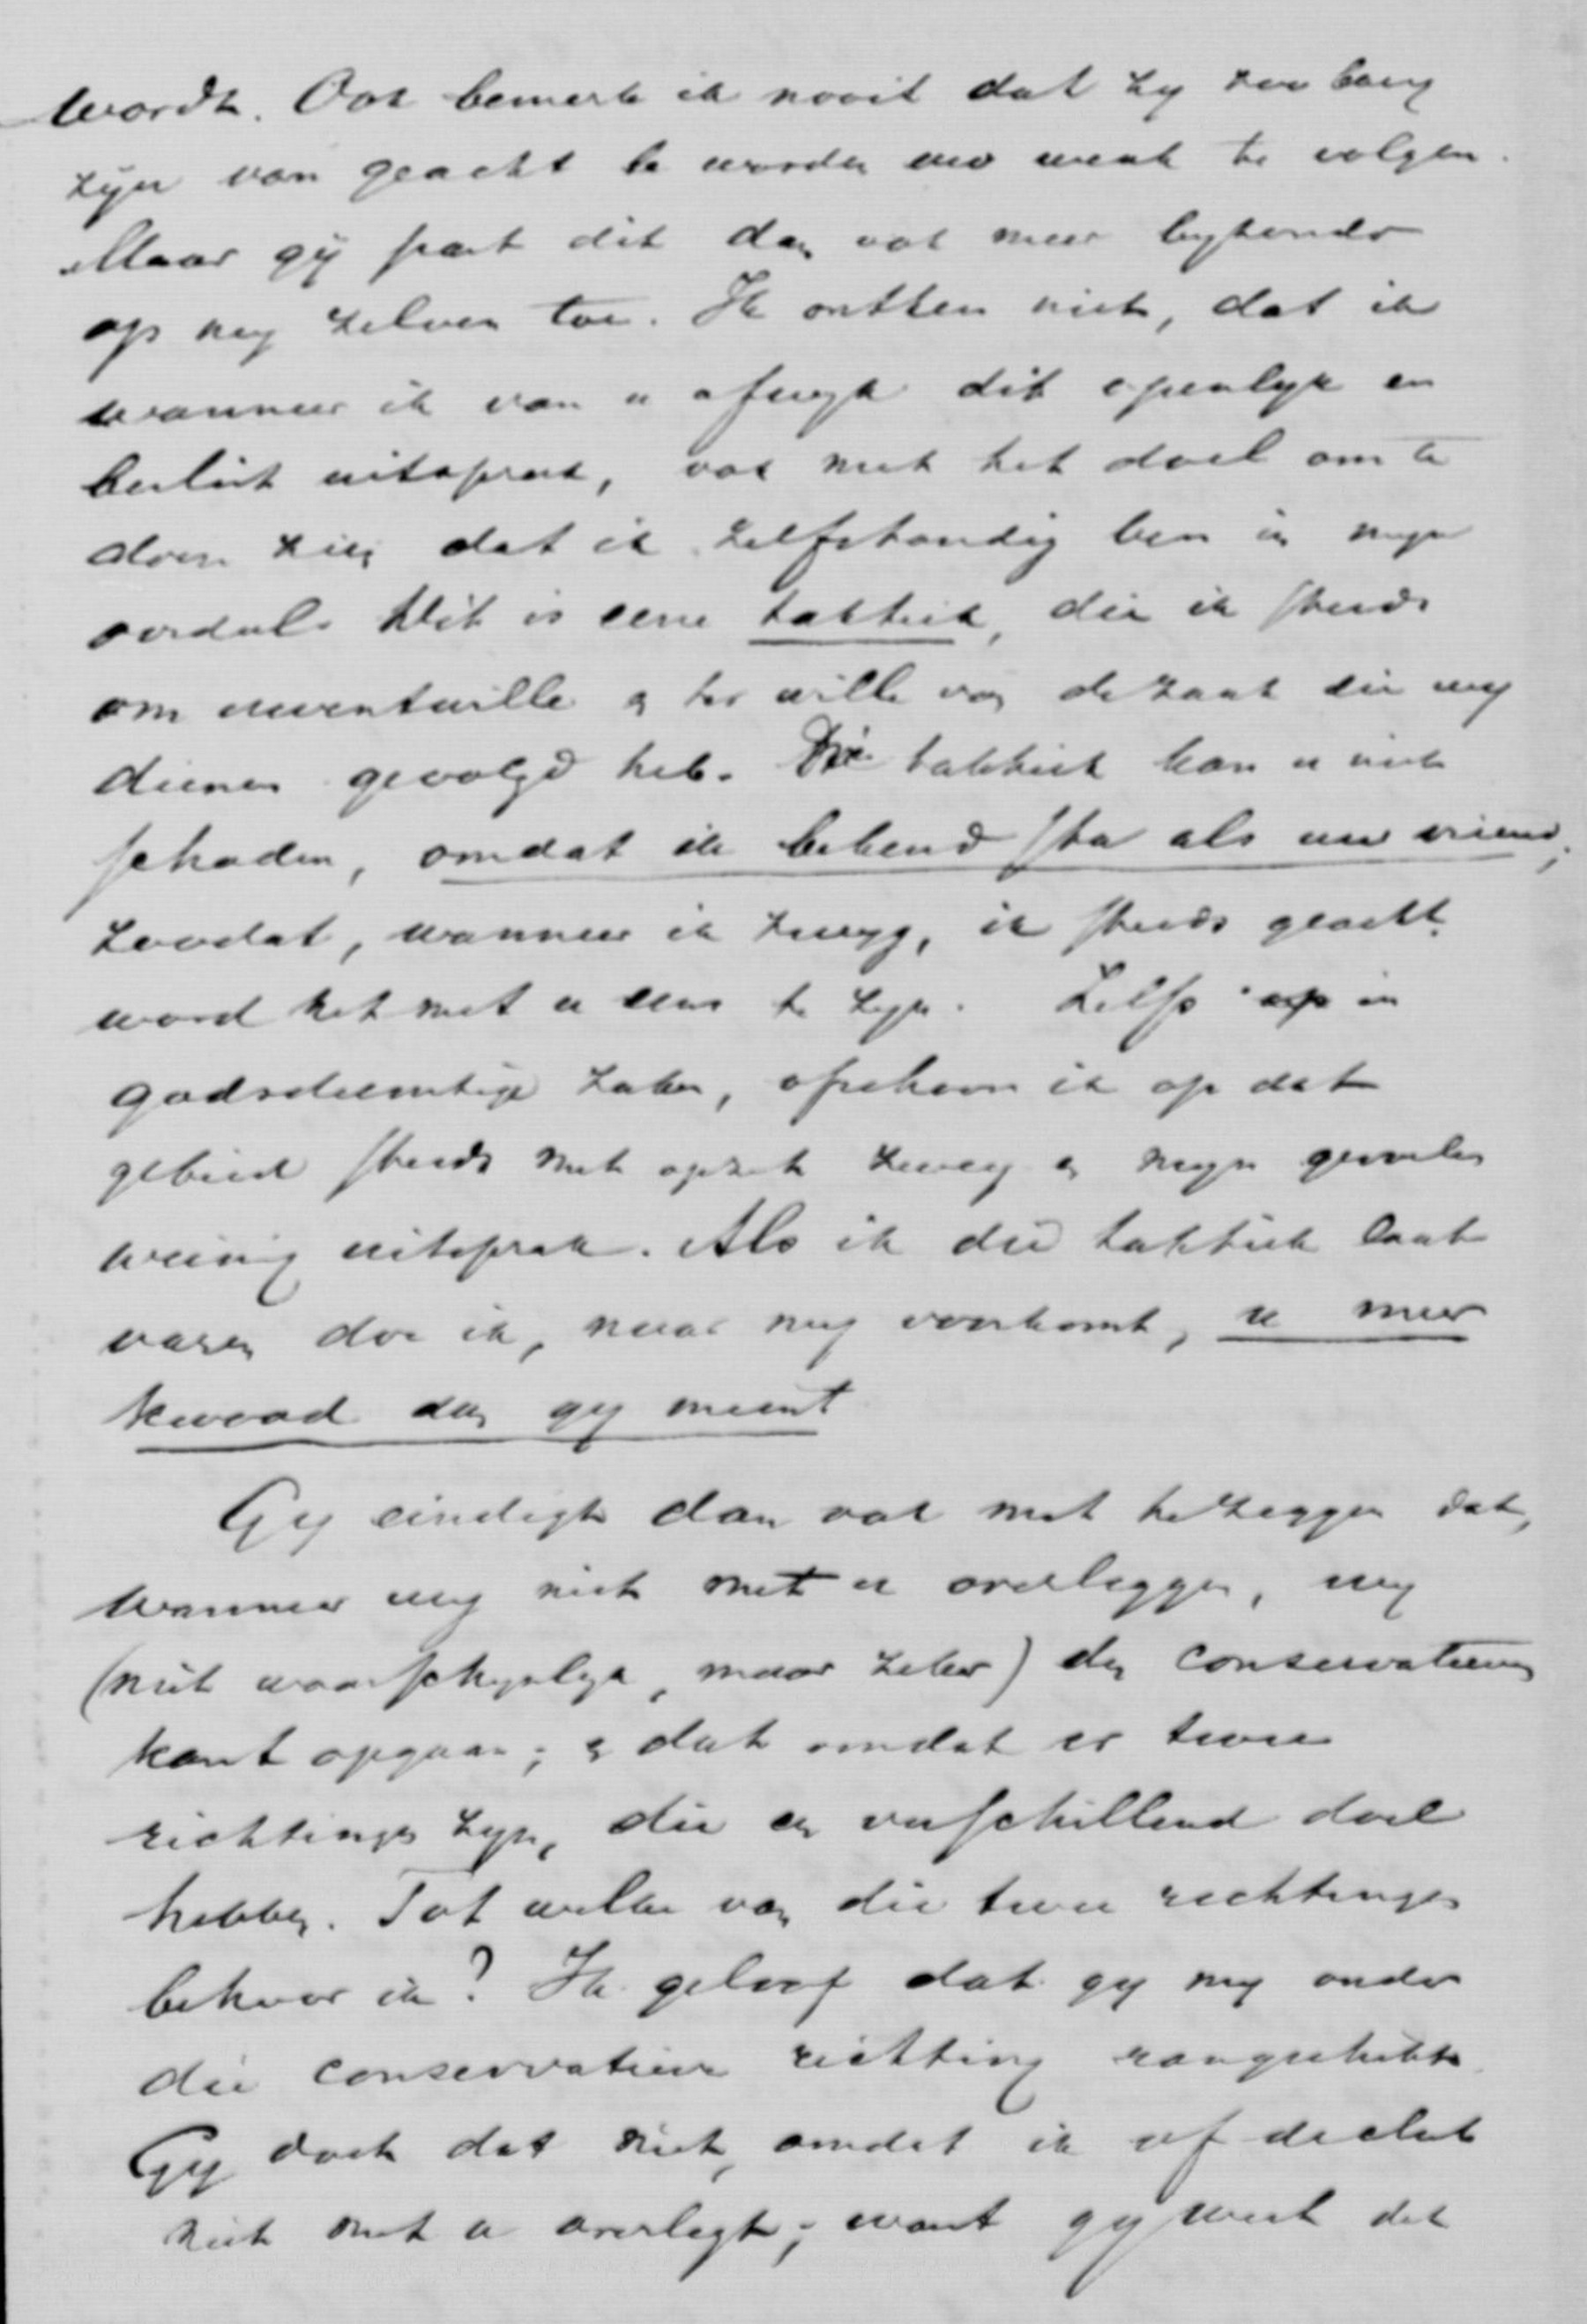 wordt. Ook bemerk ik nooit dat zy zoo bang
zyn van geacht te worden uw wenk te volgen.
Maar gij past dit dan ook meer byzonder
op my zelven toe. Ik ontken niet, dat ik
wanneer ik van u afwyk dit openlyk en
beslist uitspreek, ook met het doel om te
doen zien dat ik zelfstandig ben in myn
oordeel. Dit is eene taktiek, die ik steeds
om uwentwille & ter wille van de zaak die wy
dienen gevolgd heb. Die taktiek kan u niet
schaden, omdat ik bekend sta als uw vriend,
zoodat, wanneer ik zwyg, ik steeds geacht
word het met u eens te zyn. Zelfs op in
godsdienstige zaken, ofschoon ik op dat
gebied steeds met opzet zweeg & myn gevoelen
weinig uitsprak. Als ik die taktiek laat
varen doe ik, naar my voorkomt, u meer
kwaad dan gy meent
Gy eindigt dan ook met te zeggen dat,
wanneer wy niet met u overleggen, wy
(niet waarschynlyk, maar zeker) den conservatieven
kant opgaan; & dat omdat er twee
richtingen zyn, die een verschillend doel
hebben. Tot welke van die twee richtingen
behoor ik? Ik geloof dat gy my onder
die conservatieve richting rangschikt.
Gy doet dat niet, omdat ik of de club
niet met u overlegt; want gy weet dat